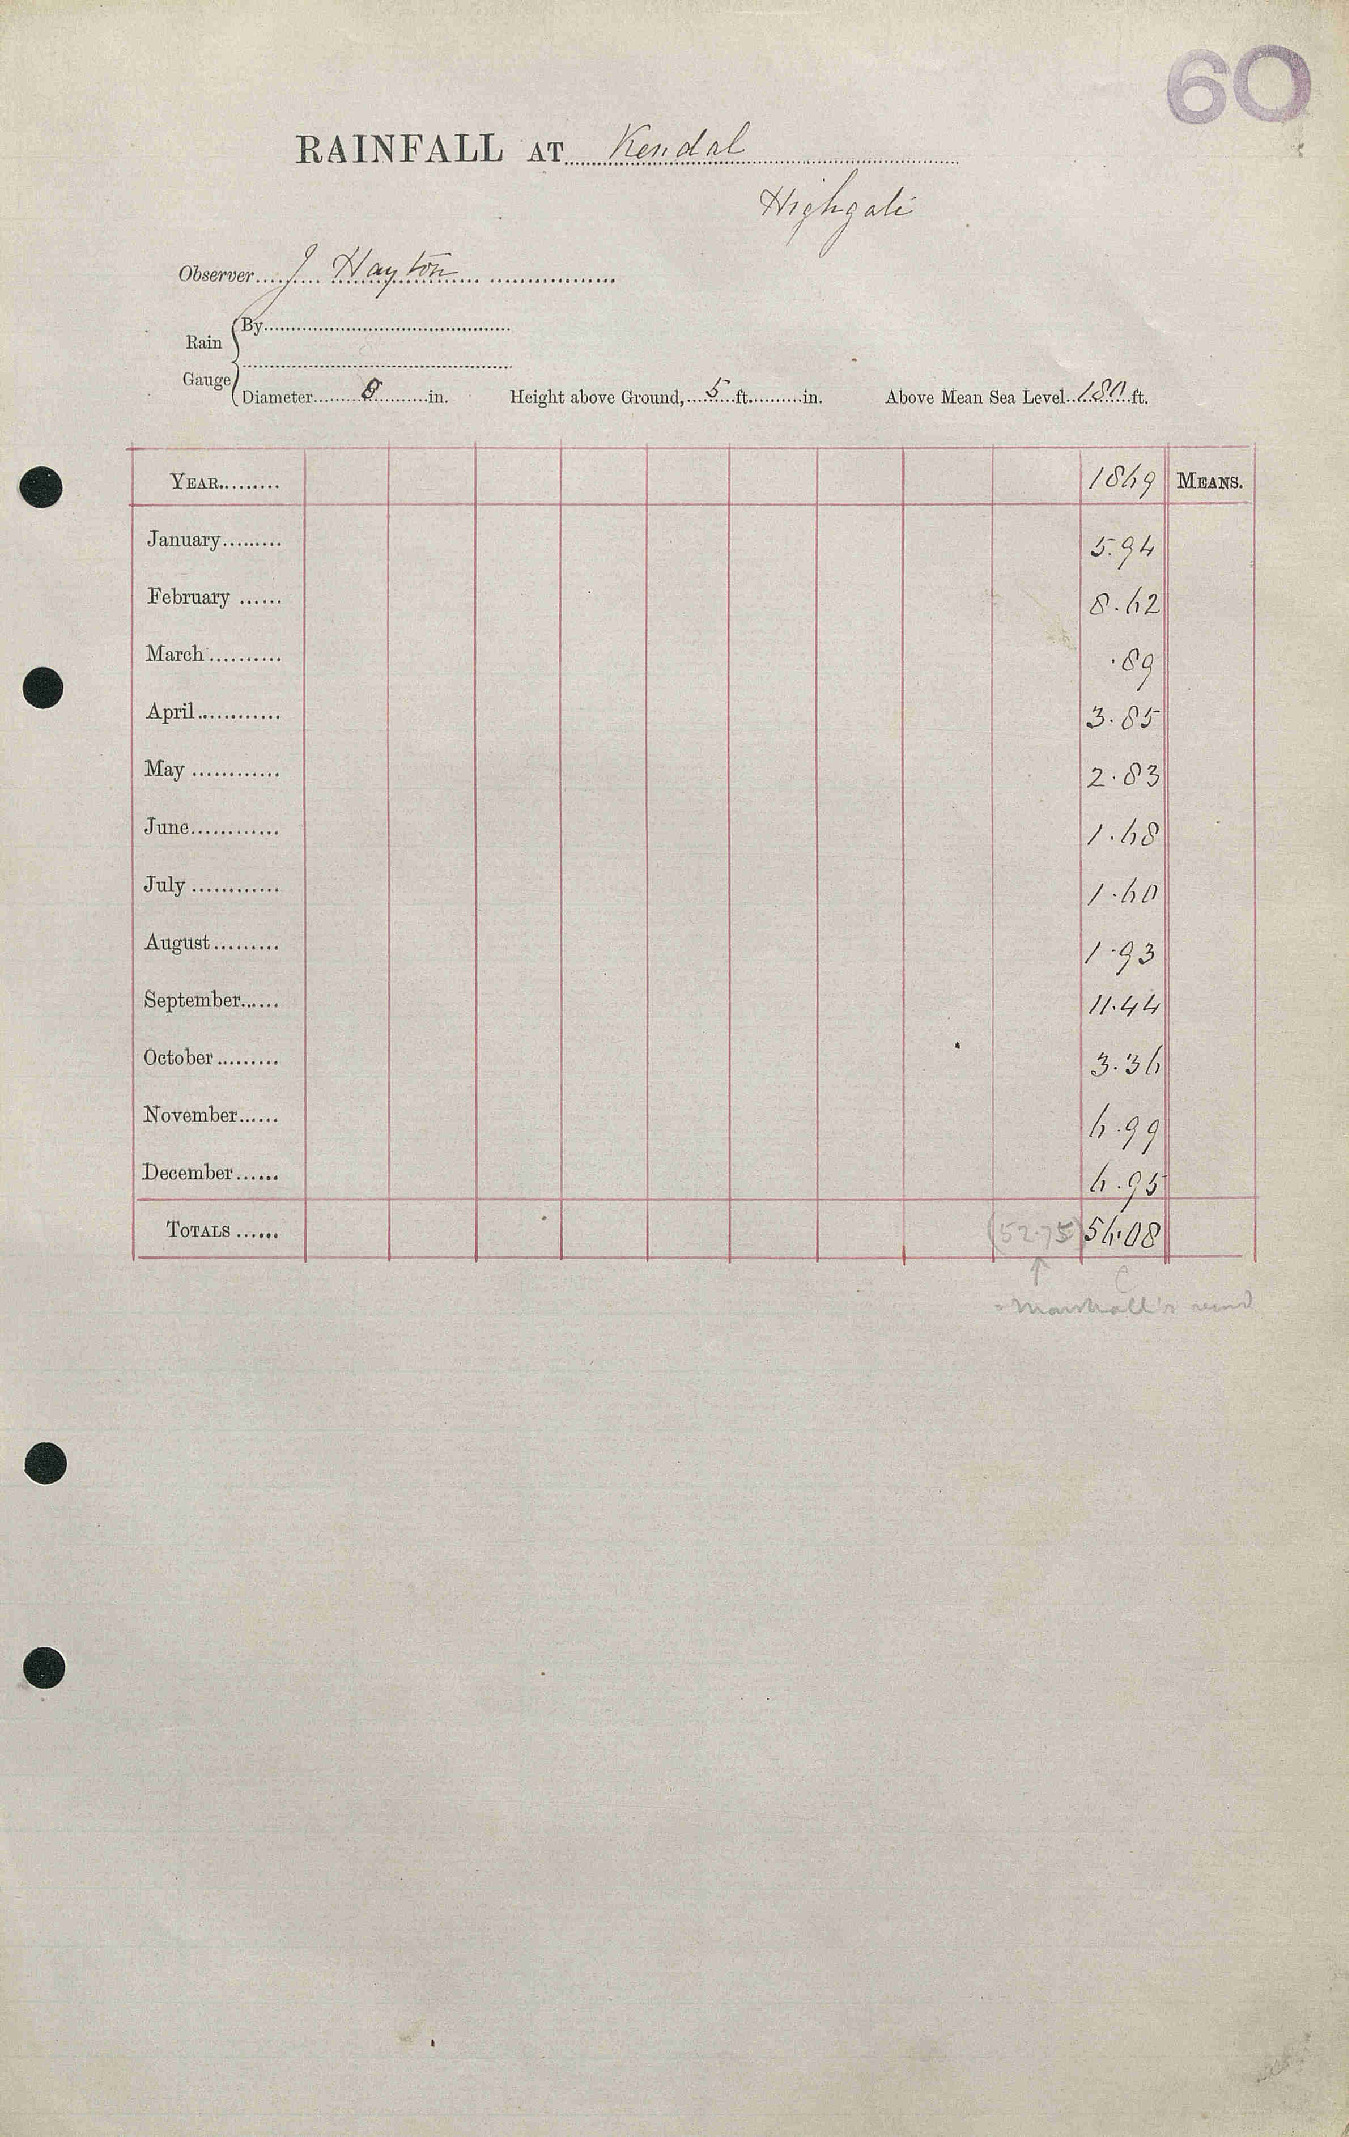 60
RAINFALL AT Kendal
Highgate
Observer J Hayton
Rain Gauge
By
Diameter 8 in. Height above Ground, 5 ft. in. Above Mean Sea Level 180 ft.
YEAR 1869 MEANS.
January 5.94
February 8.62
March .89
April 3.85
May 2.83
June 1.68
July 1.60
August 1.93
September 11.44
October 3.36
November 6.99
December 6.95
TOTALS (52.75) 56.08
Marshall's